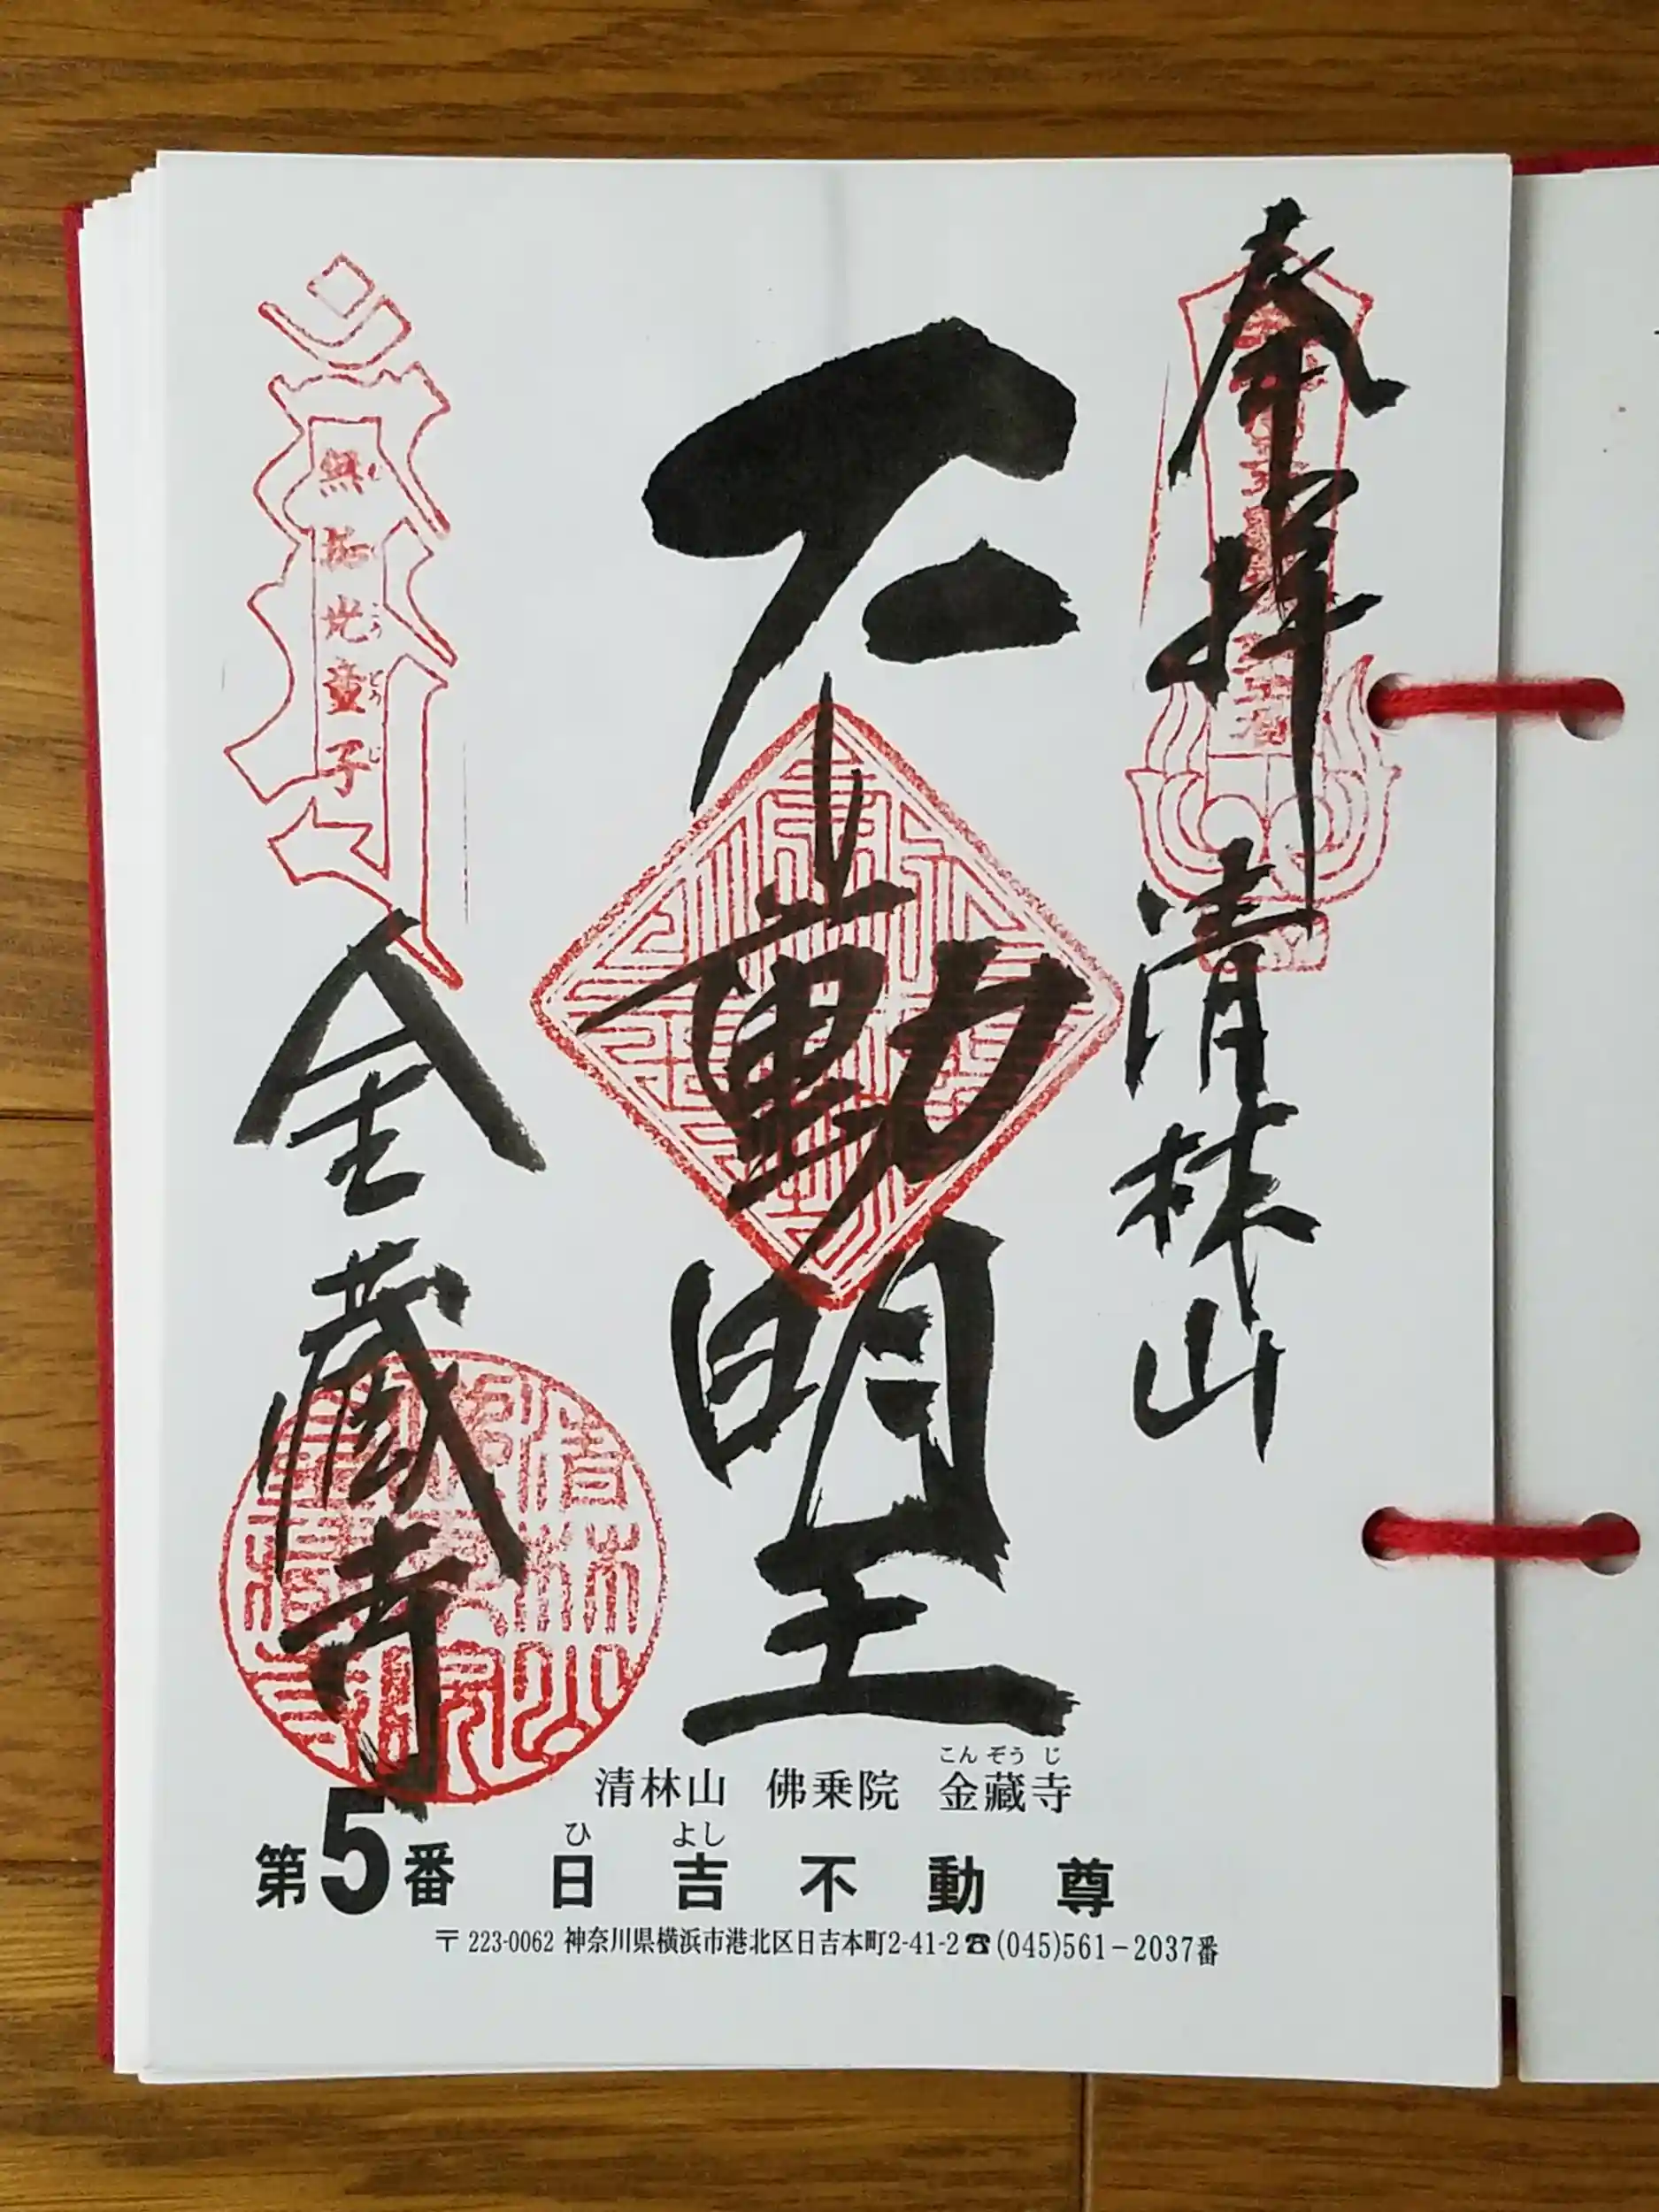 奉拝
清林山
不動明王
無垢光童子
金蔵寺
こんぞうじ
清林山 佛乗院 金藏寺
ひよし
第5番 日吉不動尊
〒223-0062 神奈川県横浜市港北区日吉本町2-41-2☎(045)561-2037番